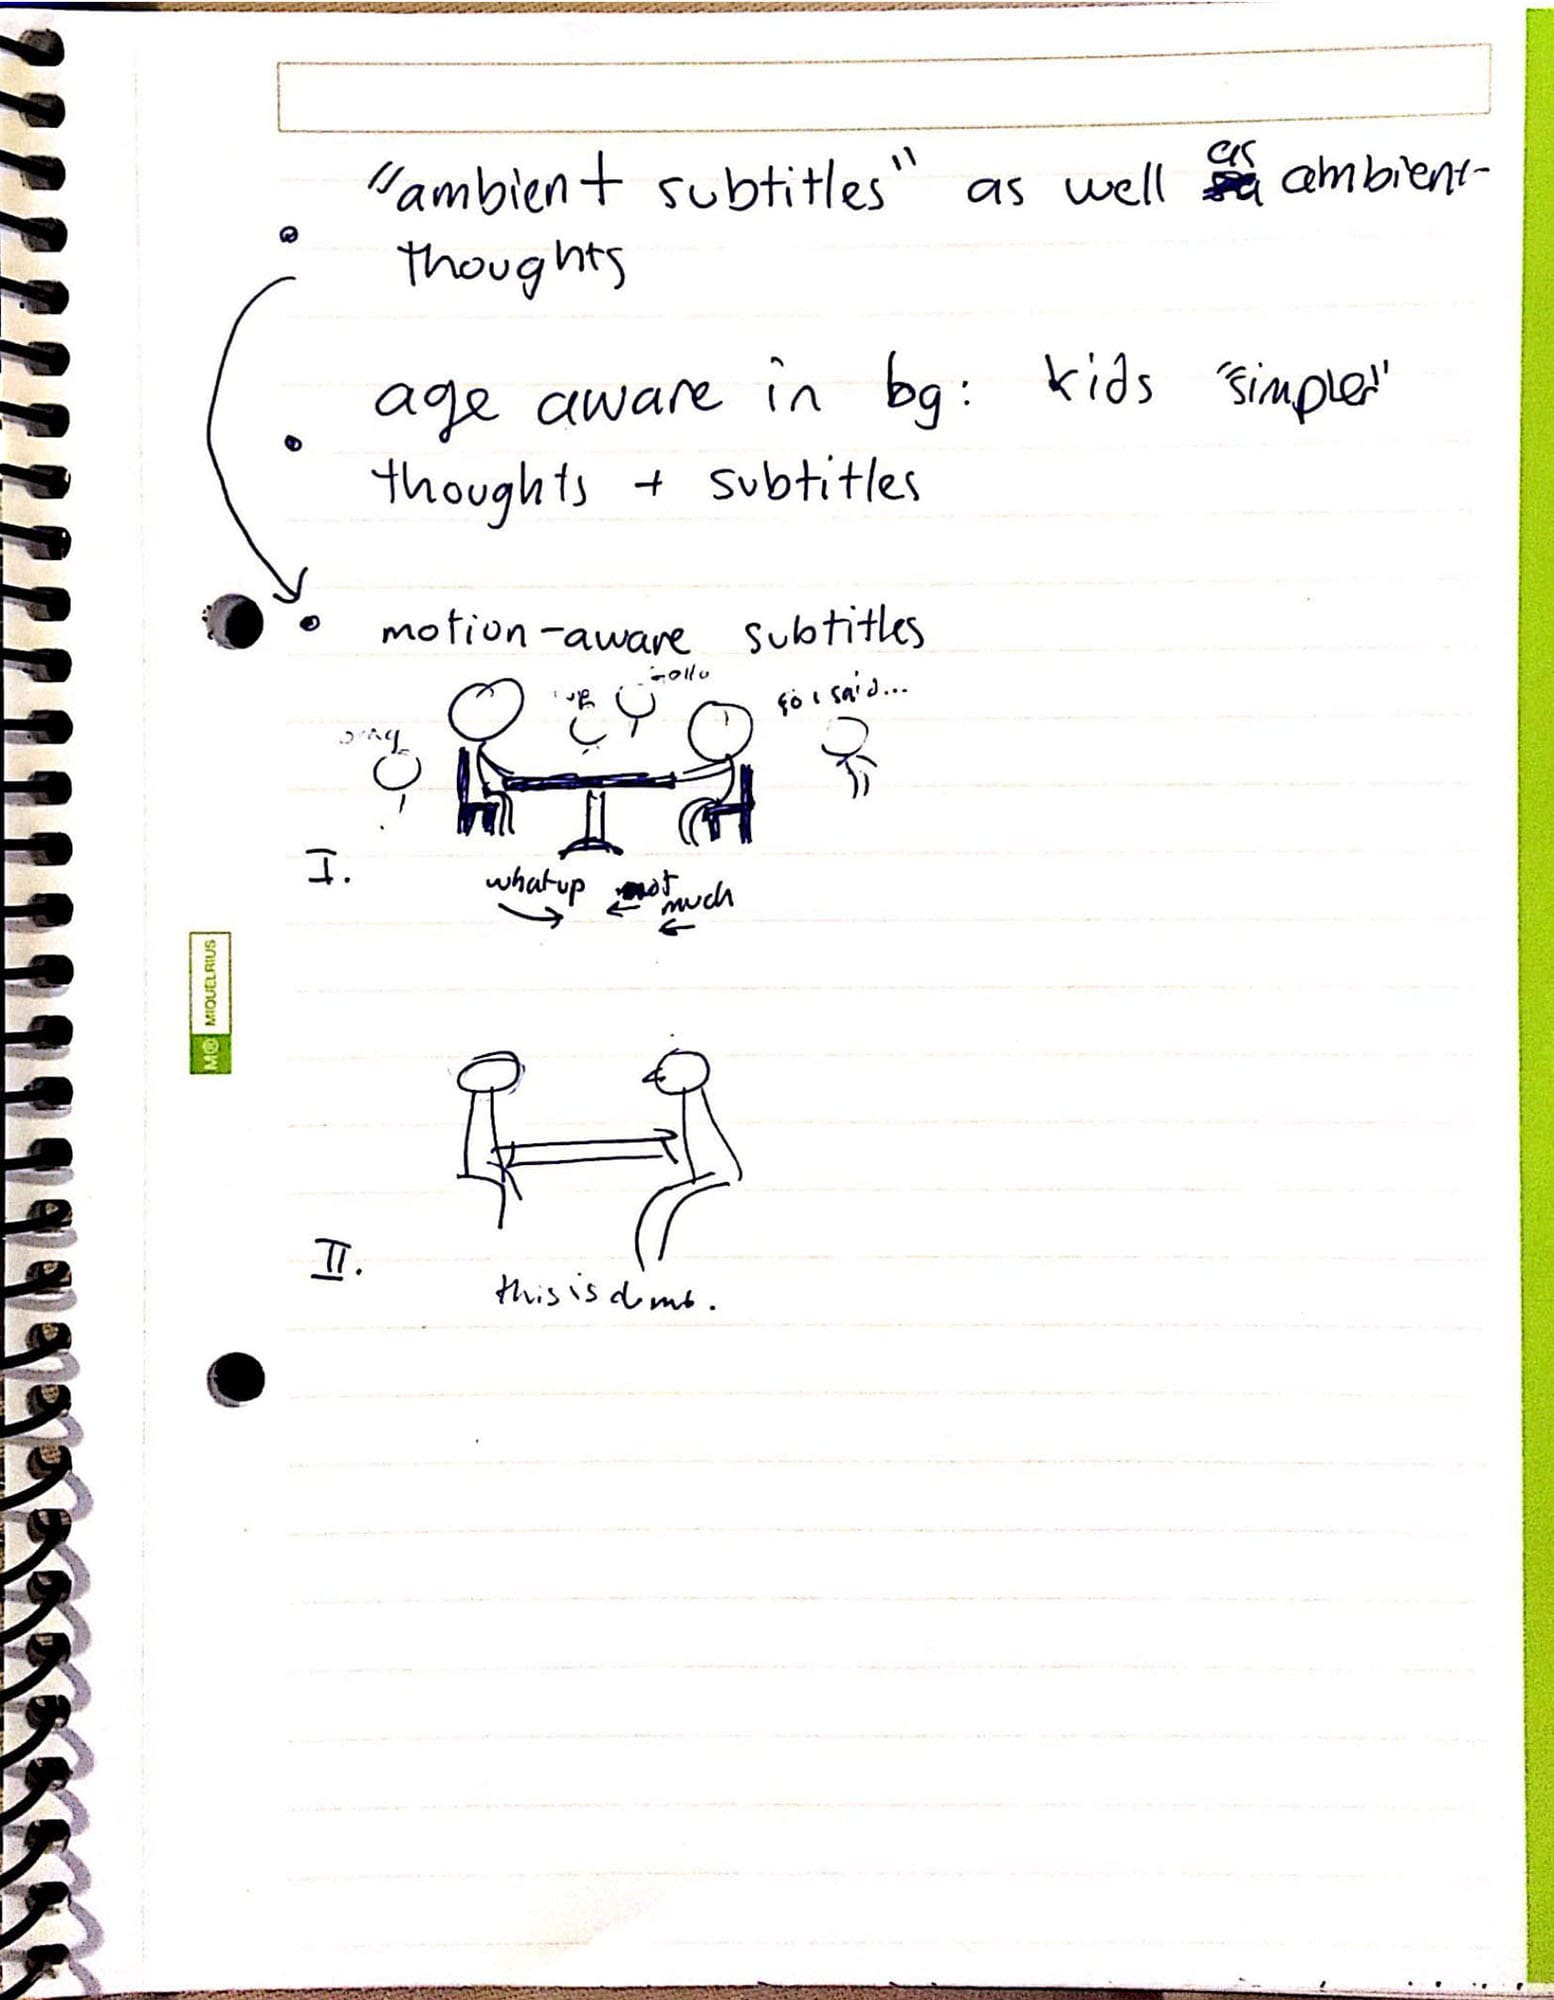 "ambient subtitles" as well as ambient-
thoughts
age aware in bg: kids "simpler"
thoughts + subtitles
motion-aware subtitles
so i said...
I.
what up not
much
M MIQUELRIUS
II.
this is dumb.